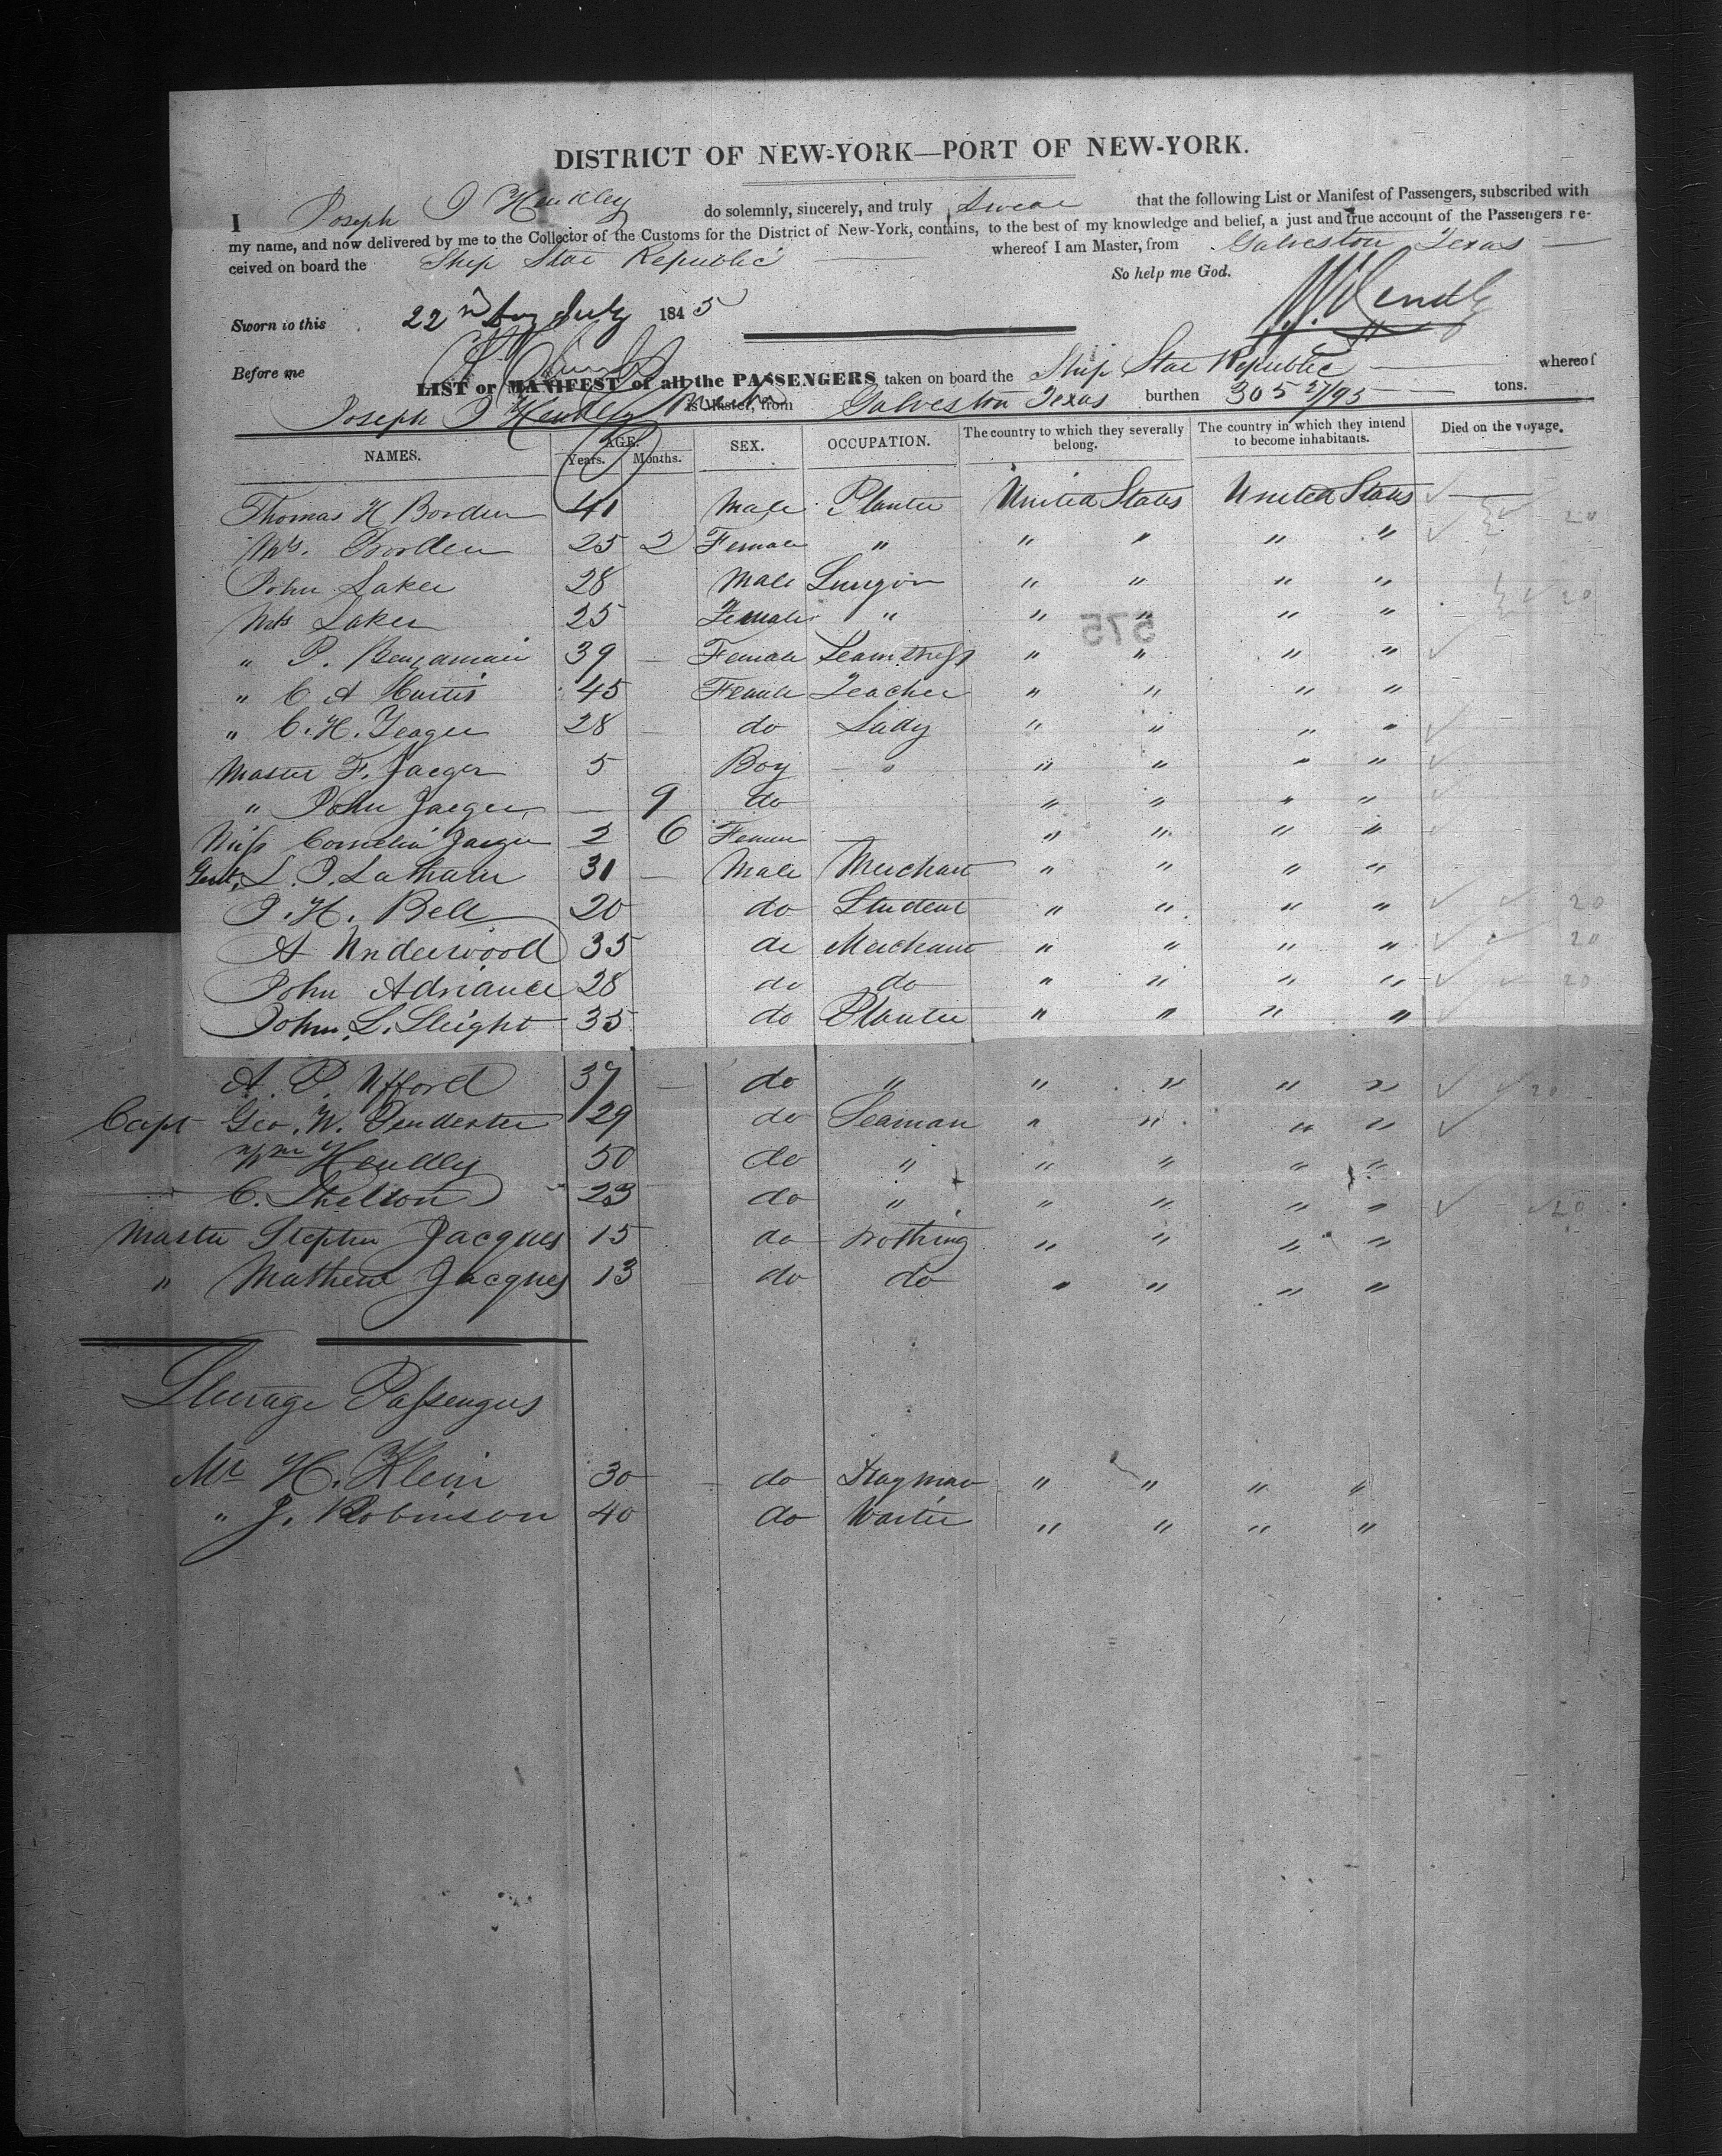 DISTRICT OF NEW-YORK—PORT OF NEW-YORK.
I Joseph J Hendley do solemnly, sincerely, and truly Swear that the following List or Manifest of Passengers, subscribed with
my name, and now delivered by me to the Collector of the Customs for the District of New-York, contains, to the best of my knowledge and belief, a just and true account of the Passengers re-
ceived on board the Ship Star Republic whereof I am Master, from Galveston Texas
So help me God.
Sworn to this 22nd day July 1845
Before me
LIST or MANIFEST of all the PASSENGERS taken on board the Ship Star Republic whereof
Joseph J Hendley is Master, from Galveston Texas burthen 305 27/95 tons.
NAMES. AGE. Years. Months. SEX. OCCUPATION. The country to which they severally belong. The country in which they intend to become inhabitants. Died on the voyage.
Thomas H Borden 41 Male Planter United States United States
Mrs. Borden 25 2 Female " " " " " 20
John Saker 28 Male Surgeon " " " "
Mrs Saker 25 Female " " " " " 20
575
" P. Benjamain 39 Female Seamstress " " " "
" C A Curtis 45 Female Teacher " " " "
" C. H. Yeager 28 do Lady " " " "
Master F. Jaeger 5 Boy " " " " "
" John Jaeger 9 do " " " "
Miss Cornelia Jaeger 2 6 Femen " " " "
Gent. L. J. Latham 31 Male Merchant " " " "
J. H. Bell 20 do Student " " " " 20
A Underwood 35 do Merchant " " " " 20
John Adriance 28 do do " " " " 20
John L. Sleight 35 do Planter " " " "
A. P. Ufford 37 do " " " " " 20
Capt Geo. W. Pendexter 29 do Seaman " " " "
Wm Hendley 50 do " " " " "
C. Shelton 23 do " " " " " 20
Master Stephen Jacques 15 do Nothing " " " "
" Mathew Jacques 13 do do " " " "
Steerage Passengers
Mr H. Klein 30 do Drayman " " " "
" J. Robinson 40 do Waiter " " " "